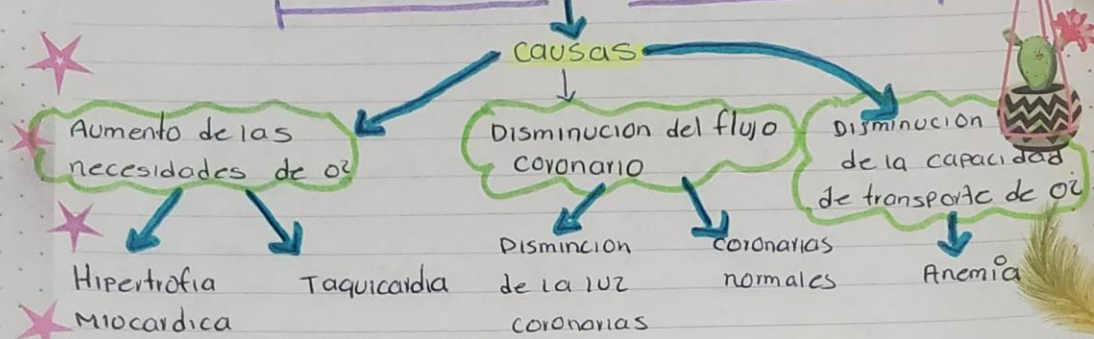 causas
Aumento de las
necesidades de o2
Hipertrofia
Miocardica
Taquicardia
Disminucion del flujo
coronario
Dismincion
de la luz
coronarias
coronarias
normales
Disminucion
de la capacidad
de transporte de o2
Anemia